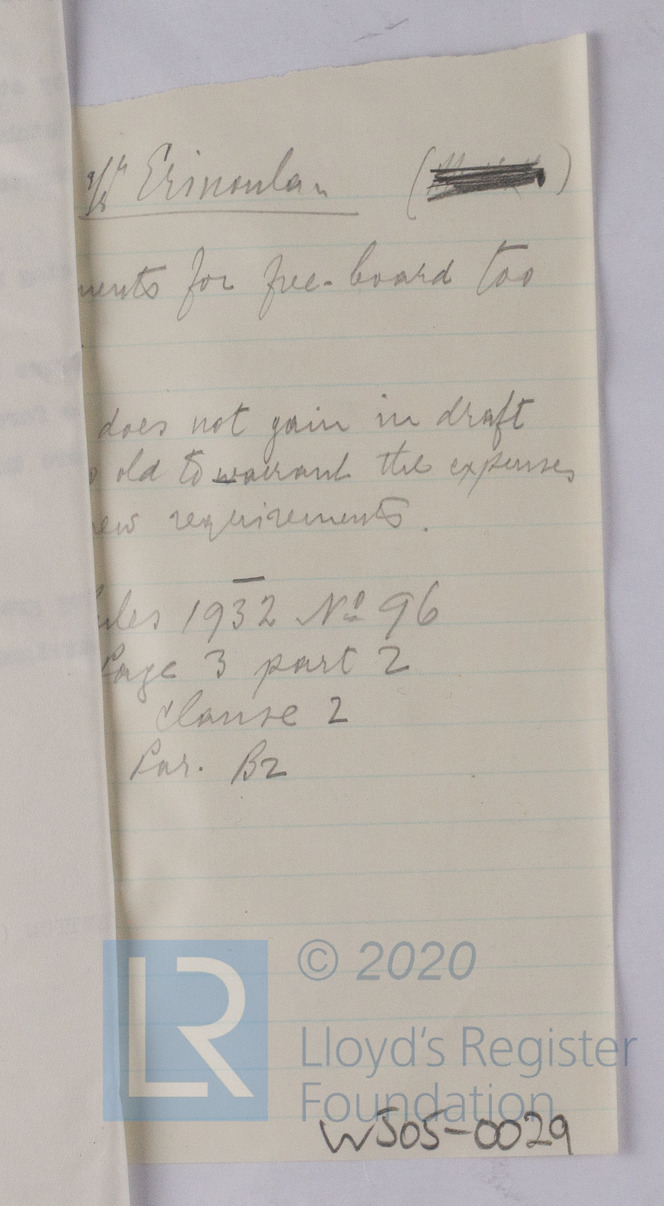 s/s "Erinoulan ( )
ments for free-board too
does not gain in draft
old to warrant the expenses
ew requirements.
ules 1932 No 96
Page 3 part 2
Clause 2
Par. B2
© 2020
LR
Lloyd's Register
Foundation
W505-0029